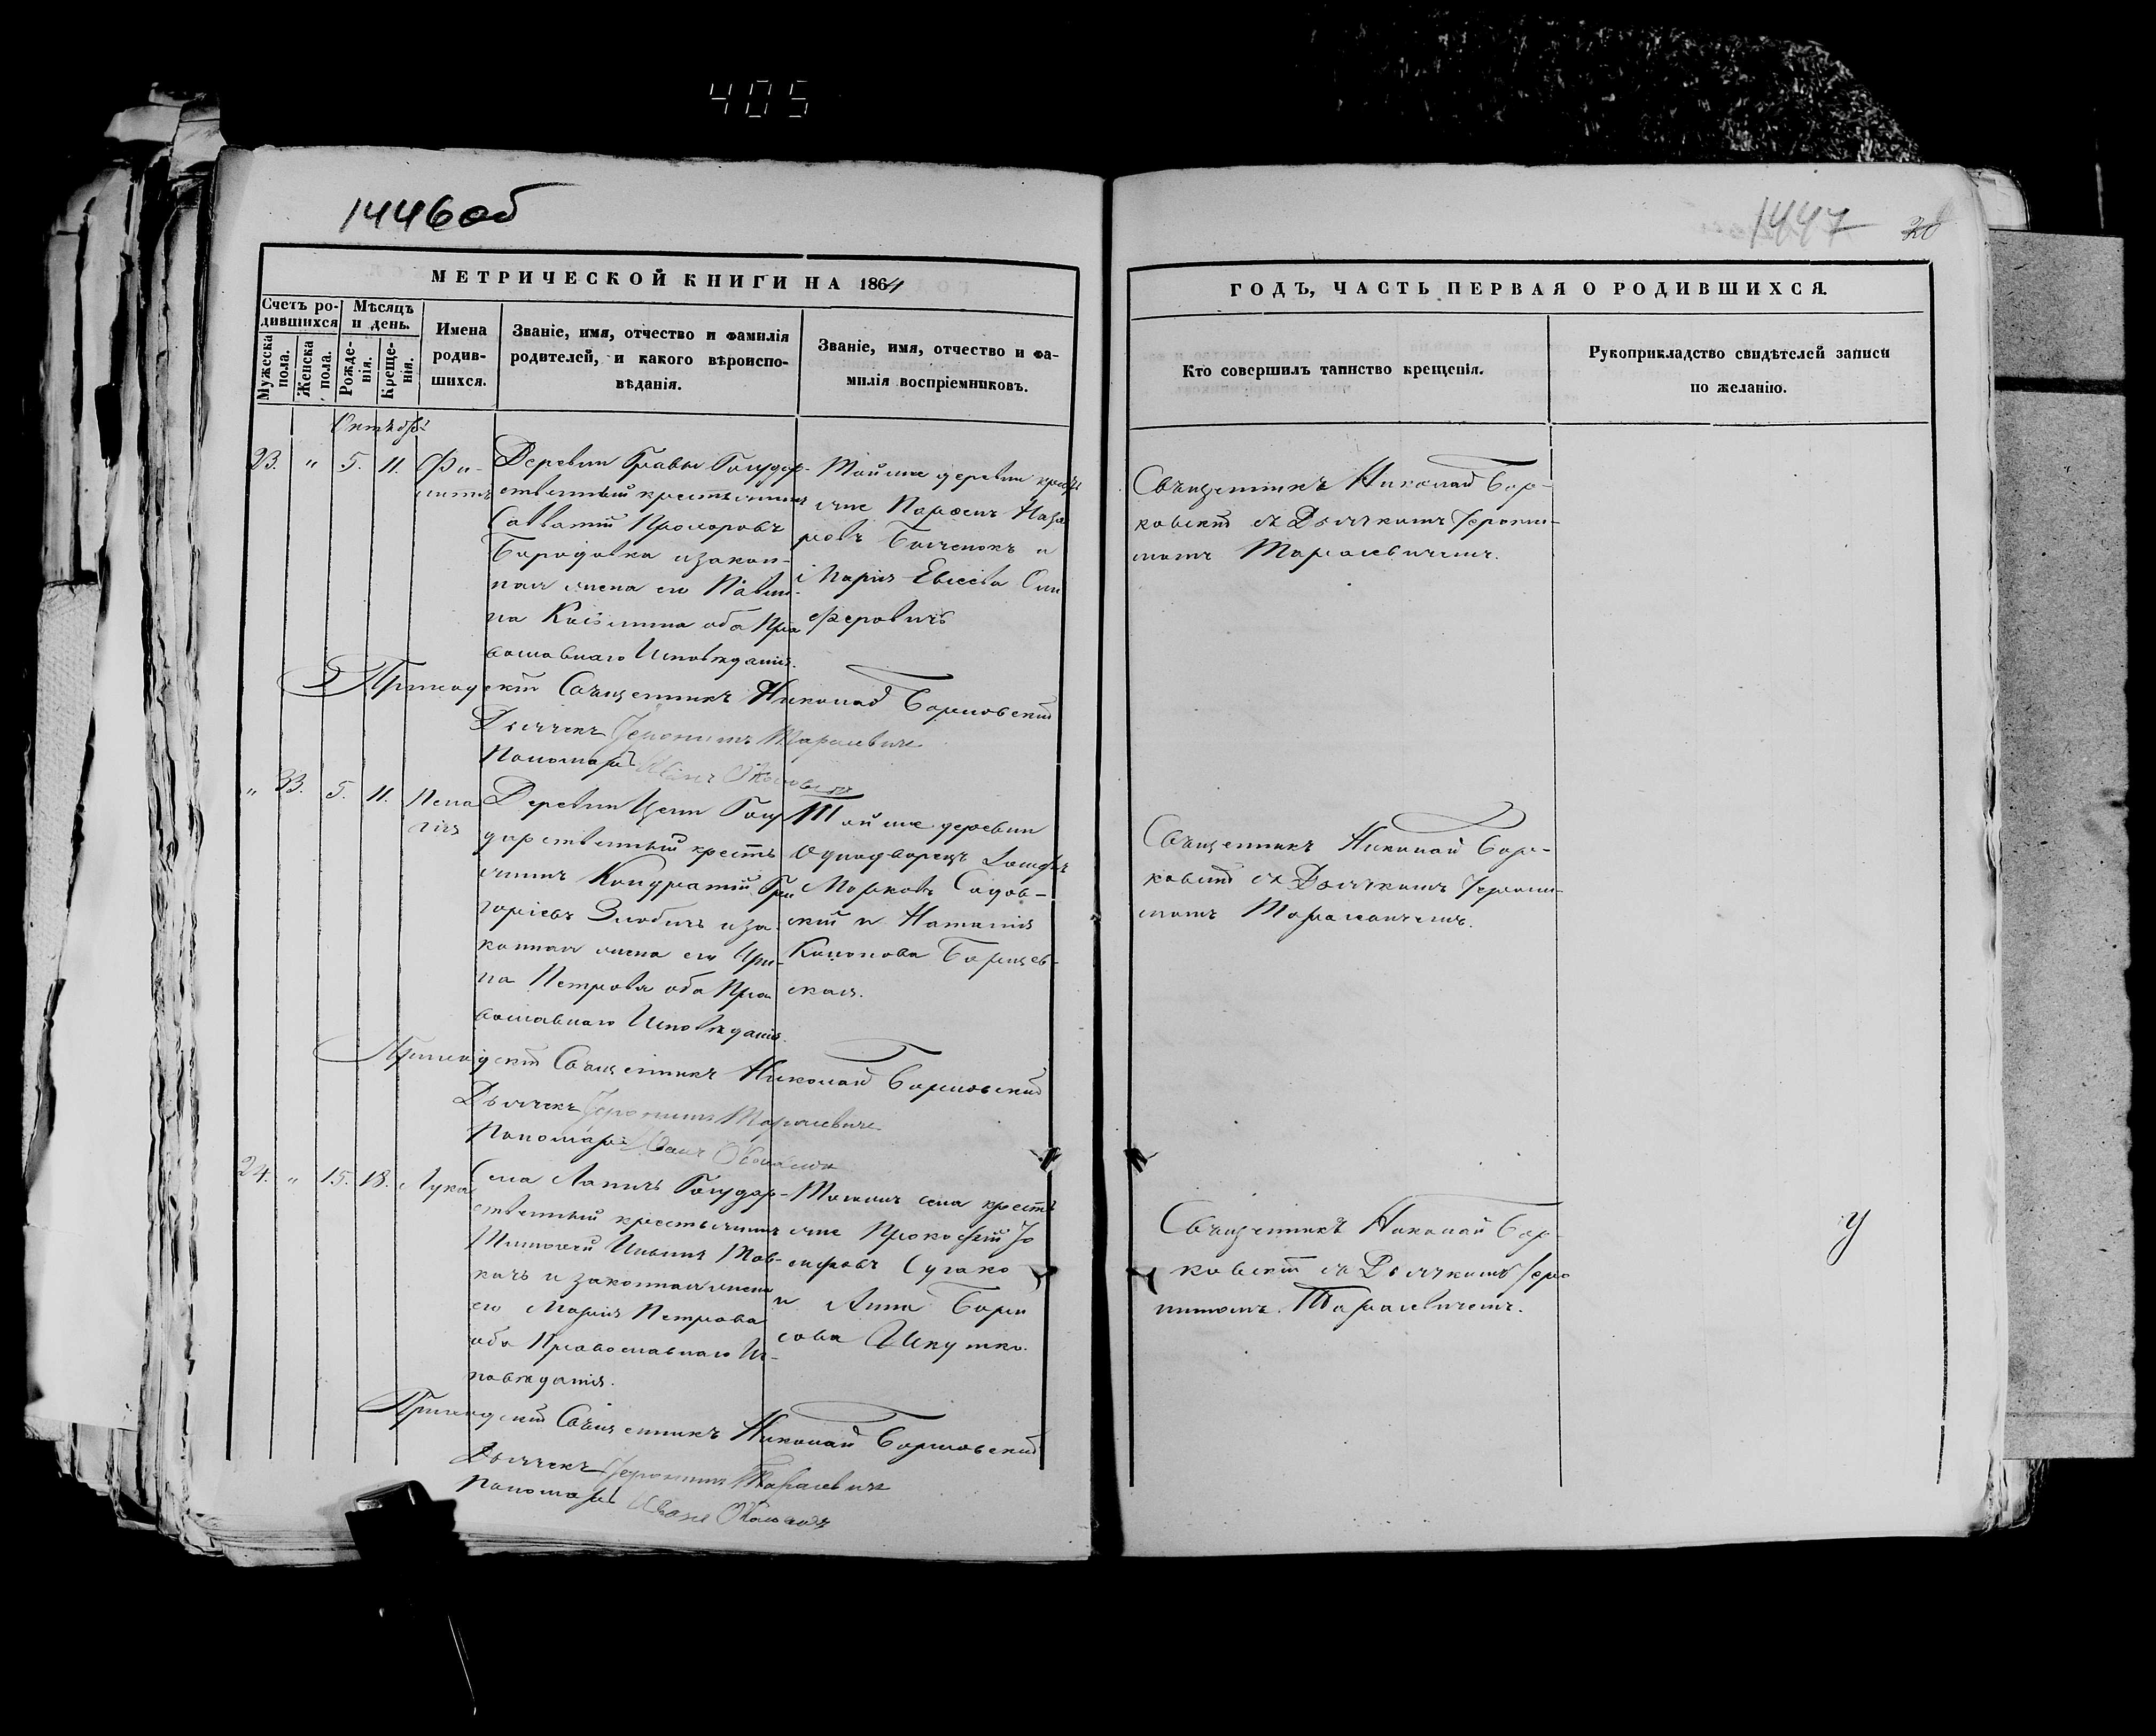 405
1446 об
1447
28
МЕТРИЧЕСКОЙ КНИГИ НА 1864
Счетъ ро-
дившихся
Мужеска пола.
Женска пола.
Мѣсяцъ
и день.
Рожде-
нія.
Креще-
нія.
Имена
родив-
шихся.
Званіе, имя, отчество и фамилія
родителей, и какого вѣроиспо-
вѣданія.
Званіе, имя, отчество и фа-
милія воспріемниковъ.
ГОДЪ, ЧАСТЬ ПЕРВАЯ О РОДИВШИХСЯ.
Кто совершилъ таинство крещенія.
Рукоприкладство свидѣтелей записи
по желанію.
Октябрь
23. " 5. 11.
Деревни Государ-
ственный крестьянинъ
Савватій Прохоровъ
Бородовка и закон-
ная жена его Павли-
на обa Пра
вославнаго Исповѣданія.
Той же деревни кресть
яне Наза
ровъ и
Марія Евсеева
Священникъ Николай Бор-
ковскій съ Дьячкомъ Іерони-
момъ Тарасевичемъ.
Приходскій Священникъ Николай Борковскій
Дьячекъ Іеронимъ Тарасевичъ
Пономарь Иванъ
" 33. 5. 11. Пела
гія
Деревни Госу
дарственный кресть
янинъ Кондратій Гри
горіевъ Злобичъ и за-
конная жена его Ири-
на Петрова оба Пра
вославнаго Исповѣданія.
Той же деревни
Однодворецъ
Марковъ Садов-
скій и Наталія
Кононова
ская.
Священникъ Николай Бор-
ковскій съ Дьячкомъ Іерони-
момъ Тарасевичемъ.
Приходскій Священникъ Николай Борковскій
Дьячекъ Іеронимъ Тарасевичъ
Пономарь Иванъ
24. " 15. 18. Лука
Села Лапичъ Государ-
ственный крестьянинъ
Тимофей Ильинъ
и законная жена
его Марія Петрова
оба Православнаго Ис-
повѣданія.
Того же села кресть
яне Прокофій Іо
сифовъ Сугако
и Анна Бори
сова Шкутко.
Священникъ Николай Бор-
ковскій съ Дьячкомъ Іеро
нимомъ Тарасевичемъ.
Приходскій Священникъ Николай Борковскій
Дьячекъ Іеронимъ Тарасевичъ
Пономарь Иванъ